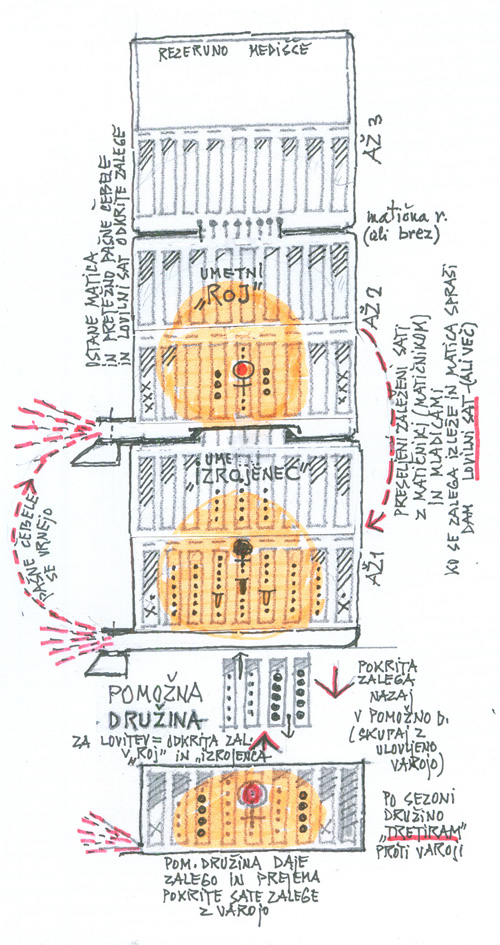 REZERVNO MEDIŠČE
AŽ 3
OSTANE MATICA
IN PRETEŽNO PAŠNE ČEBELE
IN LOVILNI SAT ODKRITE ZALEGE
matična r.
(ali brez)
UMETNI
„ROJ"
AŽ 2
XXX
XX
PRESELJENI ZALEŽENI SATI
Z MATIČNIKI (MATIČNIKOM)
IN MLADICAMI
KO SE ZALEGA IZLEŽE IN MATICA SPRAŠI
DAM LOVILNI SAT (ALI VEČ)
UMETNI
„IZROJENEC"
AŽ 1
PAŠNE ČEBELE
SE VRNEJO
X
X
POMOŽNA
DRUŽINA
ZA LOVITEV = ODKRITA ZAL.
V „ROJ" IN „IZROJENCA
POKRITA
ZALEGA
NAZAJ
V POMOŽNO D.
(SKUPAJ Z
ULOVLJENO
VAROJO)
X
X
PO SEZONI
DRUŽINO
„TRETIRAM"
PROTI VAROJI
POM. DRUŽINA DAJE
ZALEGO IN PREJEMA
POKRITE SATE ZALEGE
Z VAROJO